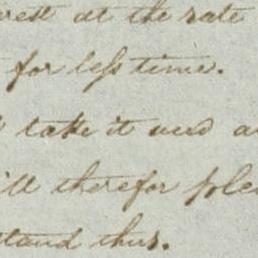 erest at the rate
for less time.
take it and a
ill therefor plea
stand thus.